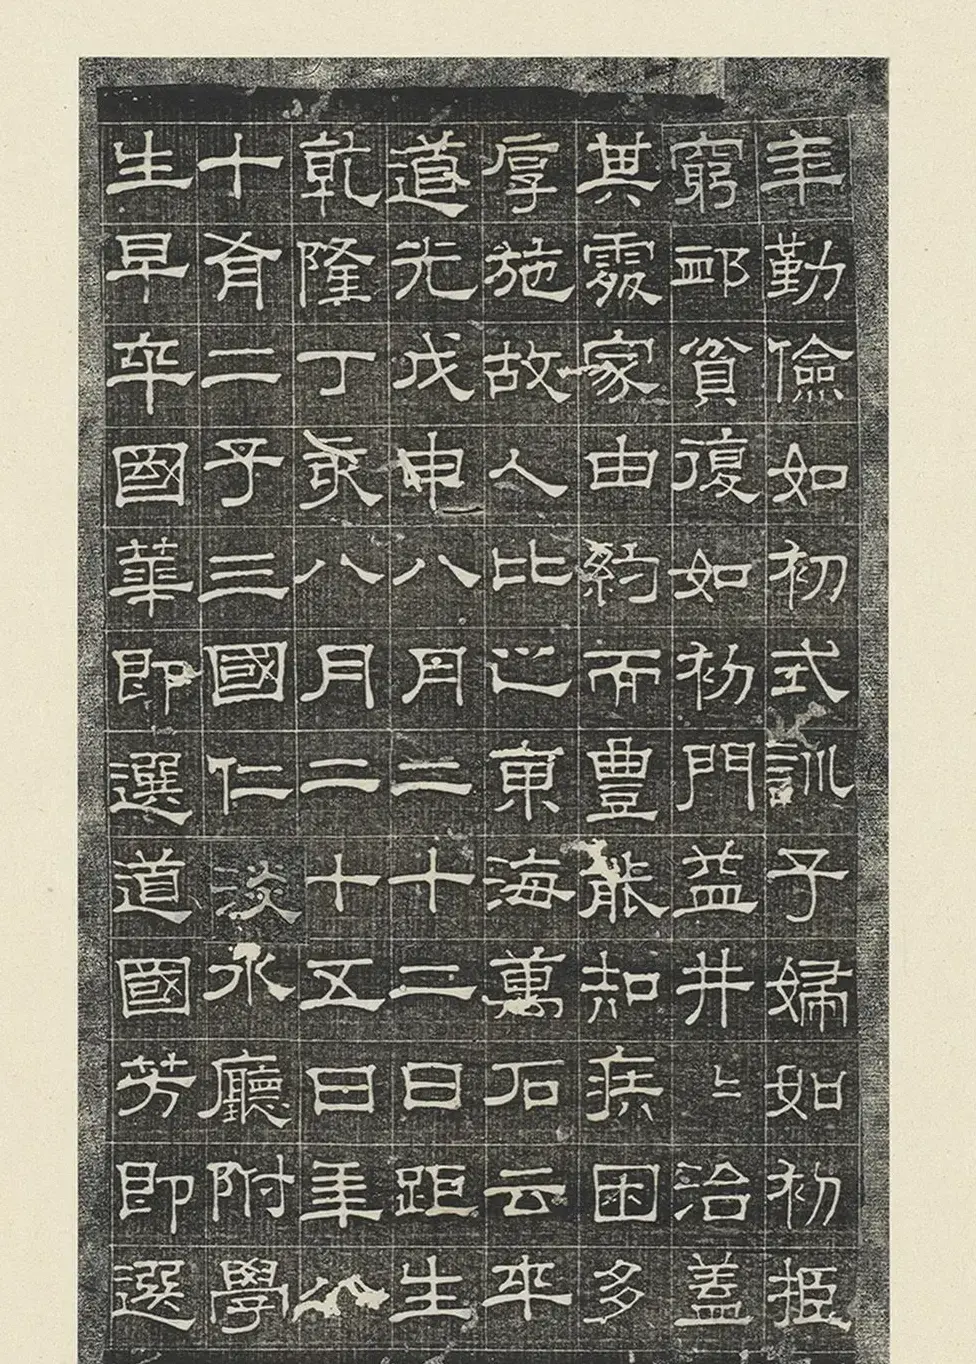 年勤儉如初式訓子婦如初挋
窮卹貧復如初門益井〻治蓋
其處家由約而豐能知疾困多
厚施故人比之東海萬石云卒
道光戊申八月二十三日距生
乾隆丁亥八月二十五日年八
十有二子三國仁淡水廳附學
生早卒國華即選道國芳即選